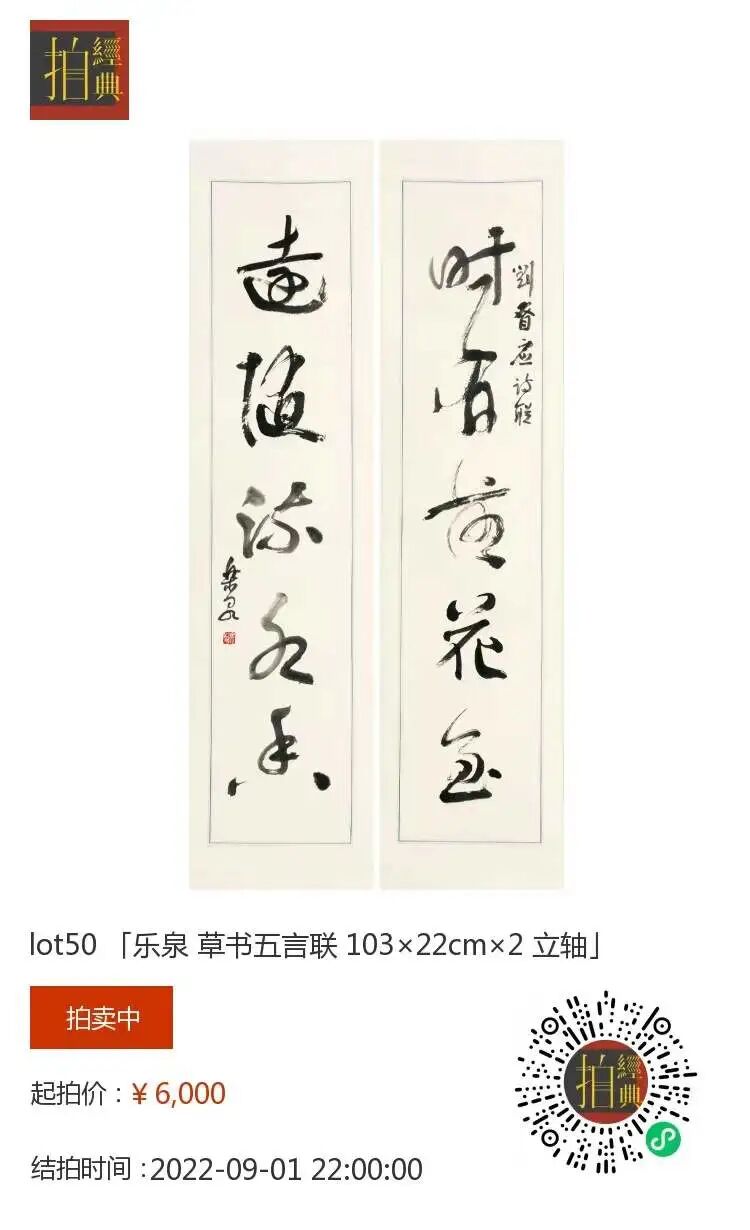 經典拍
时有落花至
劉昚虚诗联
遠随流水香
樂泉
lot50 「乐泉 草书五言联 103×22cm×2 立轴」
拍卖中
起拍价：¥ 6,000
结拍时间 :2022-09-01 22:00:00
經典拍